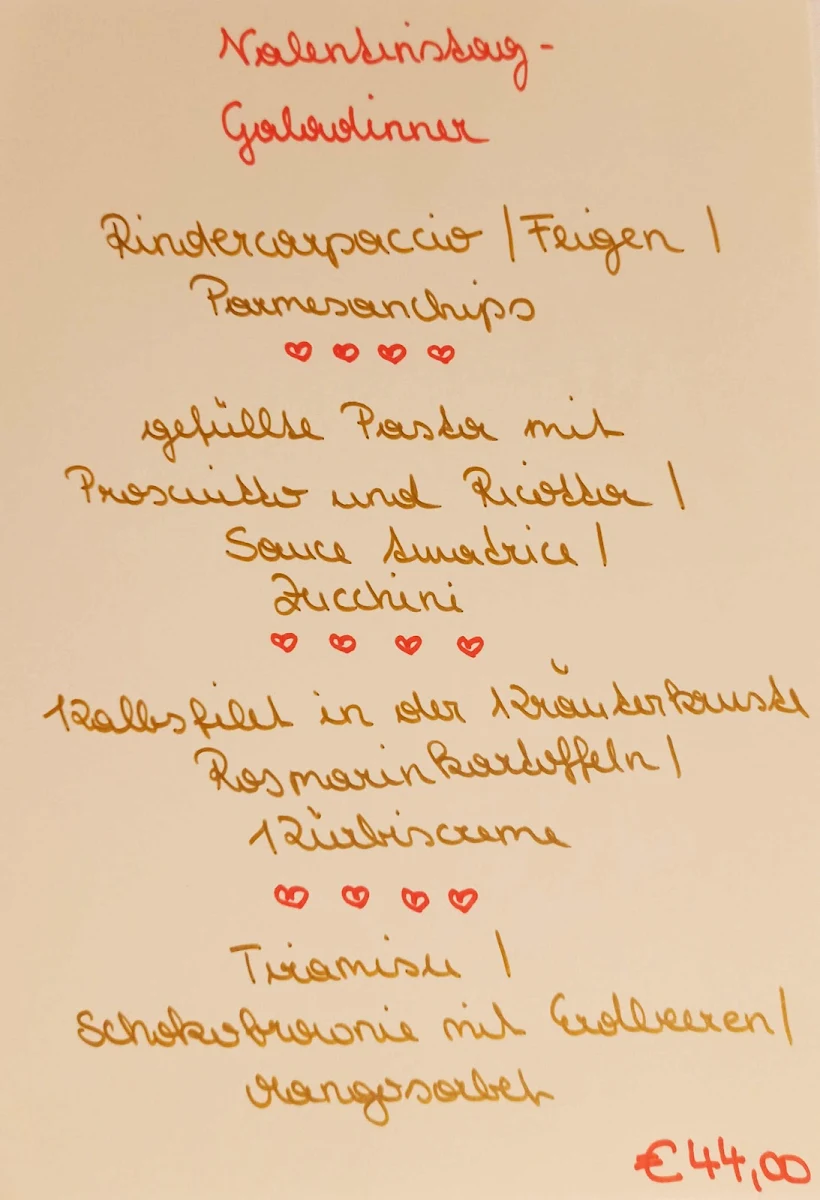 Valentinstag-
Galadinner
Rindercarpaccio | Feigen |
Parmesanchips
gefüllte Pasta mit
Proscuitto und Ricotta |
Sauce Amatrice |
Zucchini
Kalbsfilet in der Kräuterkruste
Rosmarinkartoffeln |
Kürbiscreme
Tiramisu |
Schokobrownie mit Erdbeeren |
Mangosorbet
€44,00